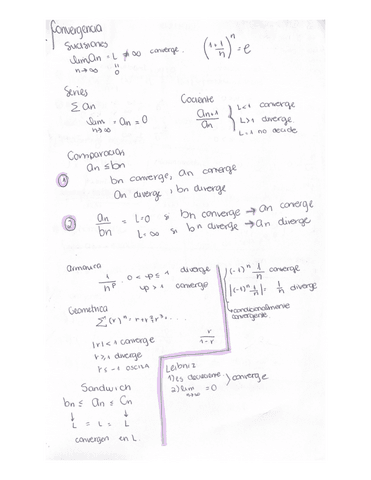 Convergencia
Sucesiones
lim an = L ≠ ∞ converge. (1+1/n)^n = e
n→∞ 
0
Series
Σ an
lim = an = 0
n→∞
Cociente
an+1/an { L<1 converge
L>1 diverge
L=1 no decide
Comparacion
an ≤ bn
① bn converge, an converge
an diverge, bn diverge
② an/bn = L=0 si bn converge → an converge
L=∞ si bn diverge → an diverge
armonica
1/n^p 0<p≤1 diverge
p>1 converge
(-1)^n 1/n converge
|(-1)^n 1/n| = 1/n diverge
condicionalmente
convergente
Geometrica
Σ(r)^n = r+r²+r³....
|r|<1 converge r/1-r
r≥1 diverge
r≤-1 oscila
Sandwich
bn ≤ an ≤ Cn
↓ ↓
L = L = L
convergen en L.
Leibniz
1) es decreciente
2) lim = 0
n→∞
converge